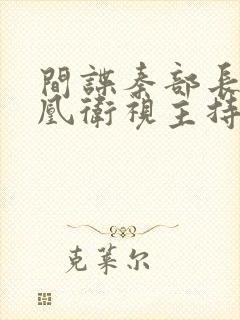 間諜秦部長
凰衛視主持
克萊尔